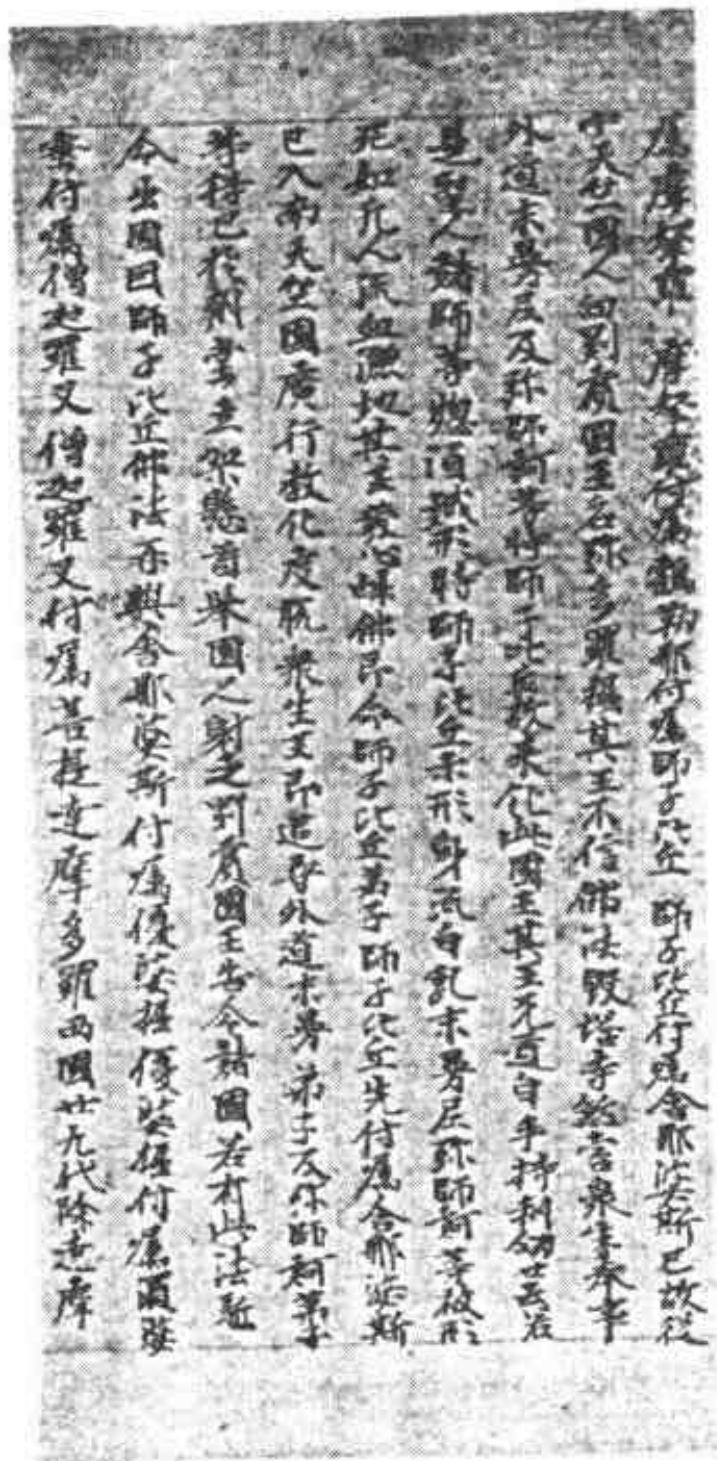 摩拏羅付囑鶴勒那付囑師子比丘師子比丘付囑舍那婆斯已故從
中天竺國人向罽賓國王名弥多羅掘其王不信佛法毀塔寺煞害衆生奉事
外道末曼尼及弥師訶等時師子比丘故來化此國王其王无道自手持利劍口云若
是聖人諸師等惣須誡形時師子比丘示形身流白乳末曼尼弥師訶等被形
死如凡人流血灑地其王發心歸佛即命師子比丘弟子師子比丘先付囑舍那婆斯
已入南天竺國廣行教化度脱衆生王即追尋外道末曼弟子及弥師訶弟子
等得已於朝堂立架懸首舉國人射之罽賓國王告令諸國若有此法駈
令出國因師子比丘佛法再興舍那婆斯付囑優婆掘優婆掘付囑須婆
蜜付囑僧迦羅叉僧迦羅叉付囑菩提達摩多羅西國廿九代除達摩